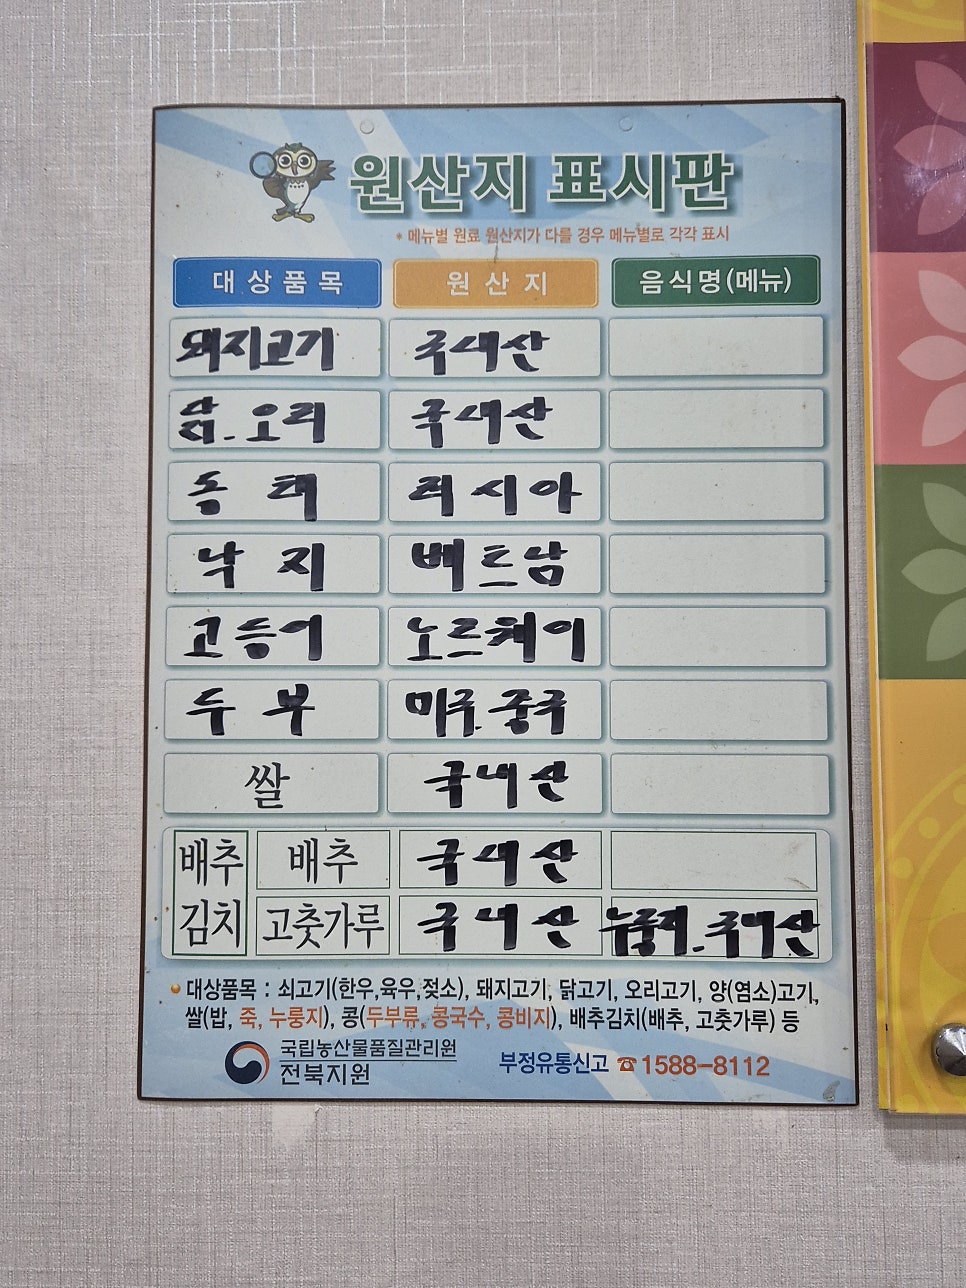 원산지 표시판
* 메뉴별 원료 원산지가 다를 경우 메뉴별로 각각 표시
대상품목 원산지 음식명(메뉴)
돼지고기 국내산
닭.오리 국내산
동태 러시아
낙지 베트남
고등어 노르웨이
두부 미국.중국
쌀 국내산
배추김치 배추 국내산
고춧가루 국내산 누룽지.국내산
• 대상품목 : 쇠고기(한우,육우,젖소), 돼지고기, 닭고기, 오리고기, 양(염소)고기,
쌀(밥, 죽, 누룽지), 콩(두부류, 콩국수, 콩비지), 배추김치(배추, 고춧가루) 등
국립농산물품질관리원
전북지원
부정유통신고 ☎1588-8112